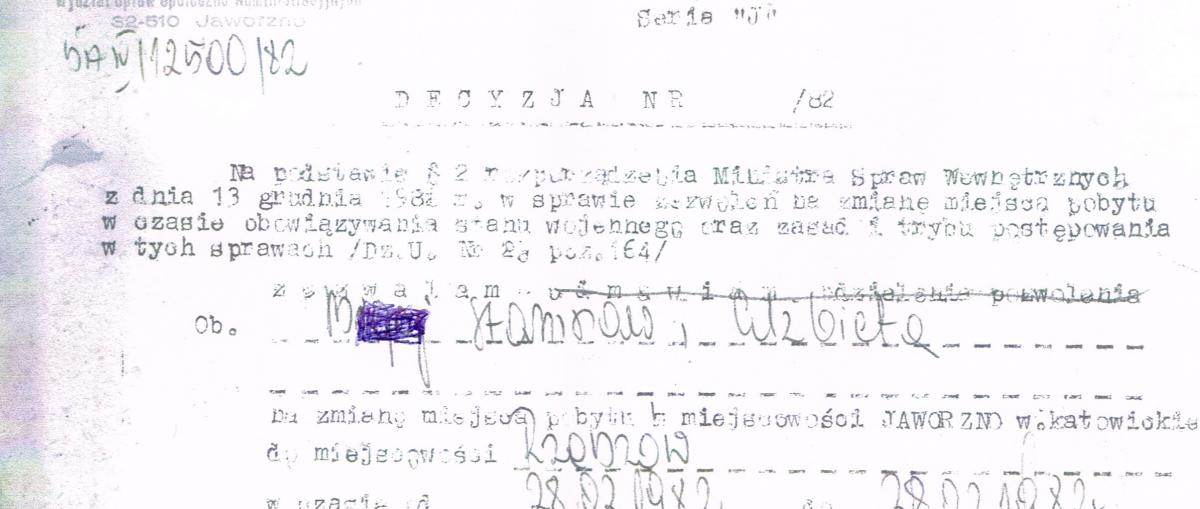 Wydział Spraw Społeczno Administracyjnych
S2-510 Jaworzno
Seria "J"
SA IV/12500/82
DECYZJA NR /82
Na podstawie § 2 rozporządzenia Ministra Spraw Wewnętrznych
z dnia 13 grudnia 1981 r. w sprawie zezwoleń na zmianę miejsca pobytu
w czasie obowiązywania stanu wojennego oraz zasad i trybu postępowania
w tych sprawach /Dz.U. Nr 29 poz.164/
zezwalam - odmawiam udzielenia pozwolenia
Ob. Stanisław, Elżbieta
na zmianę miejsca pobytu z miejscowości JAWORZNO w.katowickie
do miejscowości
w czasie od 28.02.1982 do 28.02.1982